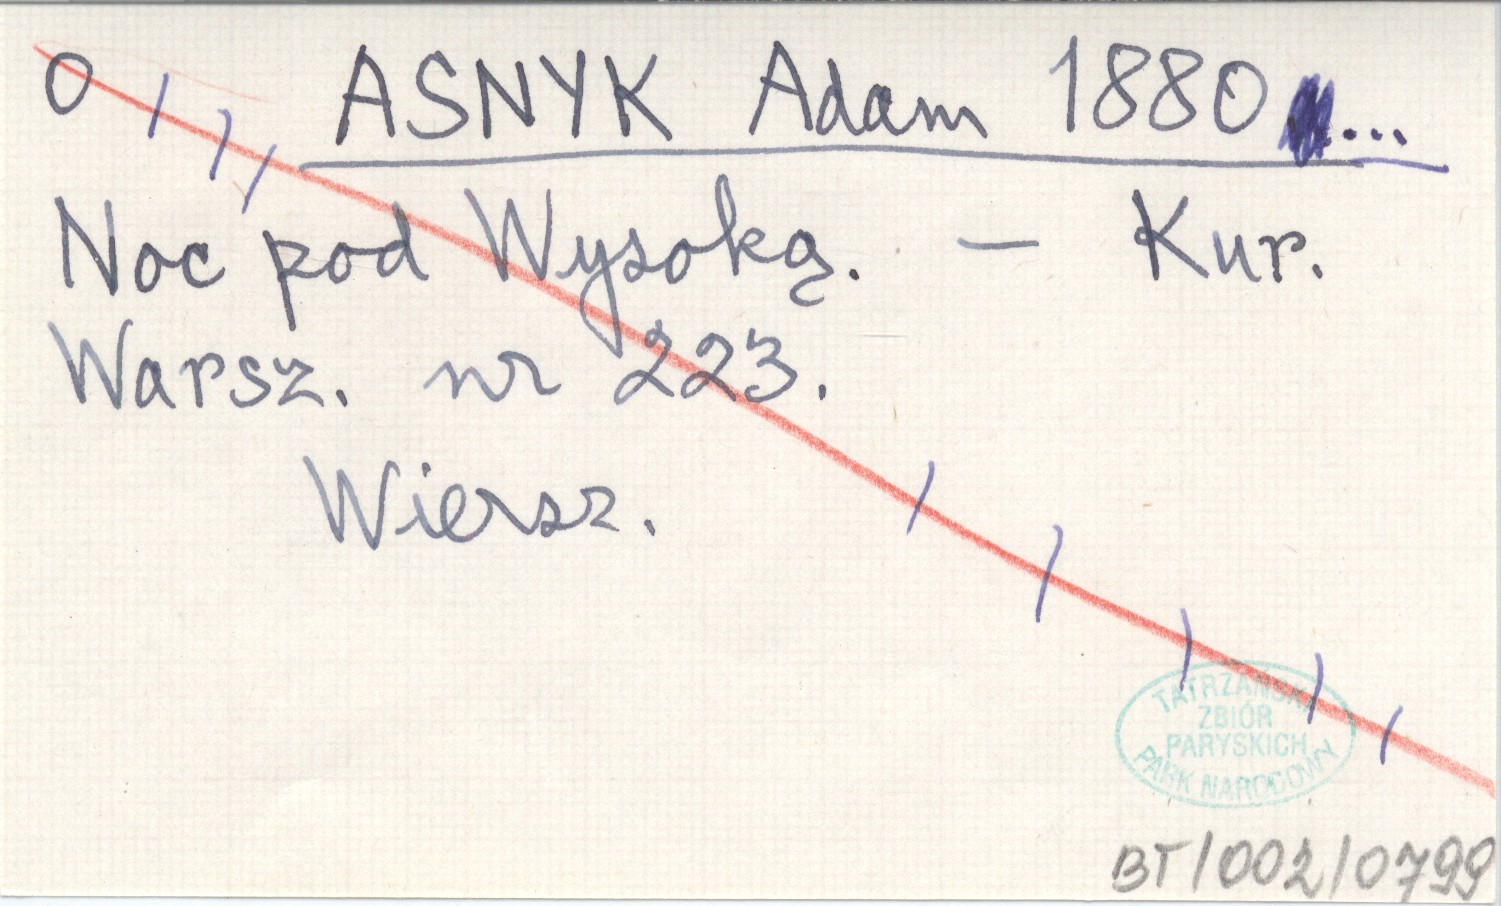 O ASNYK Adam 1880 ...
Noc pod Wysoką. — Kur.
Warsz. nr 223.
Wiersz.
TATRZAŃSKI
ZBIÓR
PARYSKICH
PARK NARODOWY
BT/002/0799